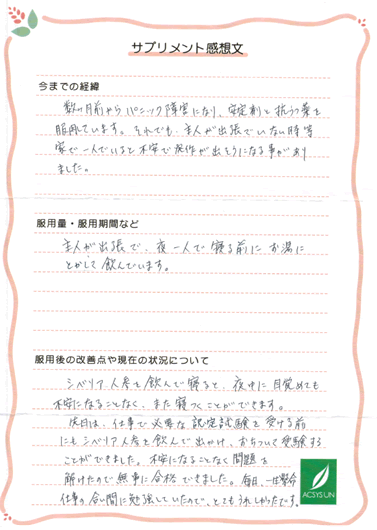 サプリメント感想文
今までの経緯
数ヶ月前からパニック障害になり、安定剤と抗うつ薬を
服用しています。それでも、主人が出張でいない時等
家で一人でいると不安で発作が出そうになる事があり
ました。
服用量・服用期間など
主人が出張で、夜一人で寝る前にお湯に
とかして飲んでいます。
服用後の改善点や現在の状況について
シベリア人参を飲んで寝ると、夜中に目覚めても
不安になることなく、また寝つくことができます。
先日は、仕事で必要な認定試験を受ける前
にもシベリア人参を飲んで出かけ、おちついて受験する
ことができました。不安になることなく問題を
解けたので無事に合格できました。毎日、一生懸命
仕事の合い間に勉強していたので、とてもうれしかったです。
ACSYSUN